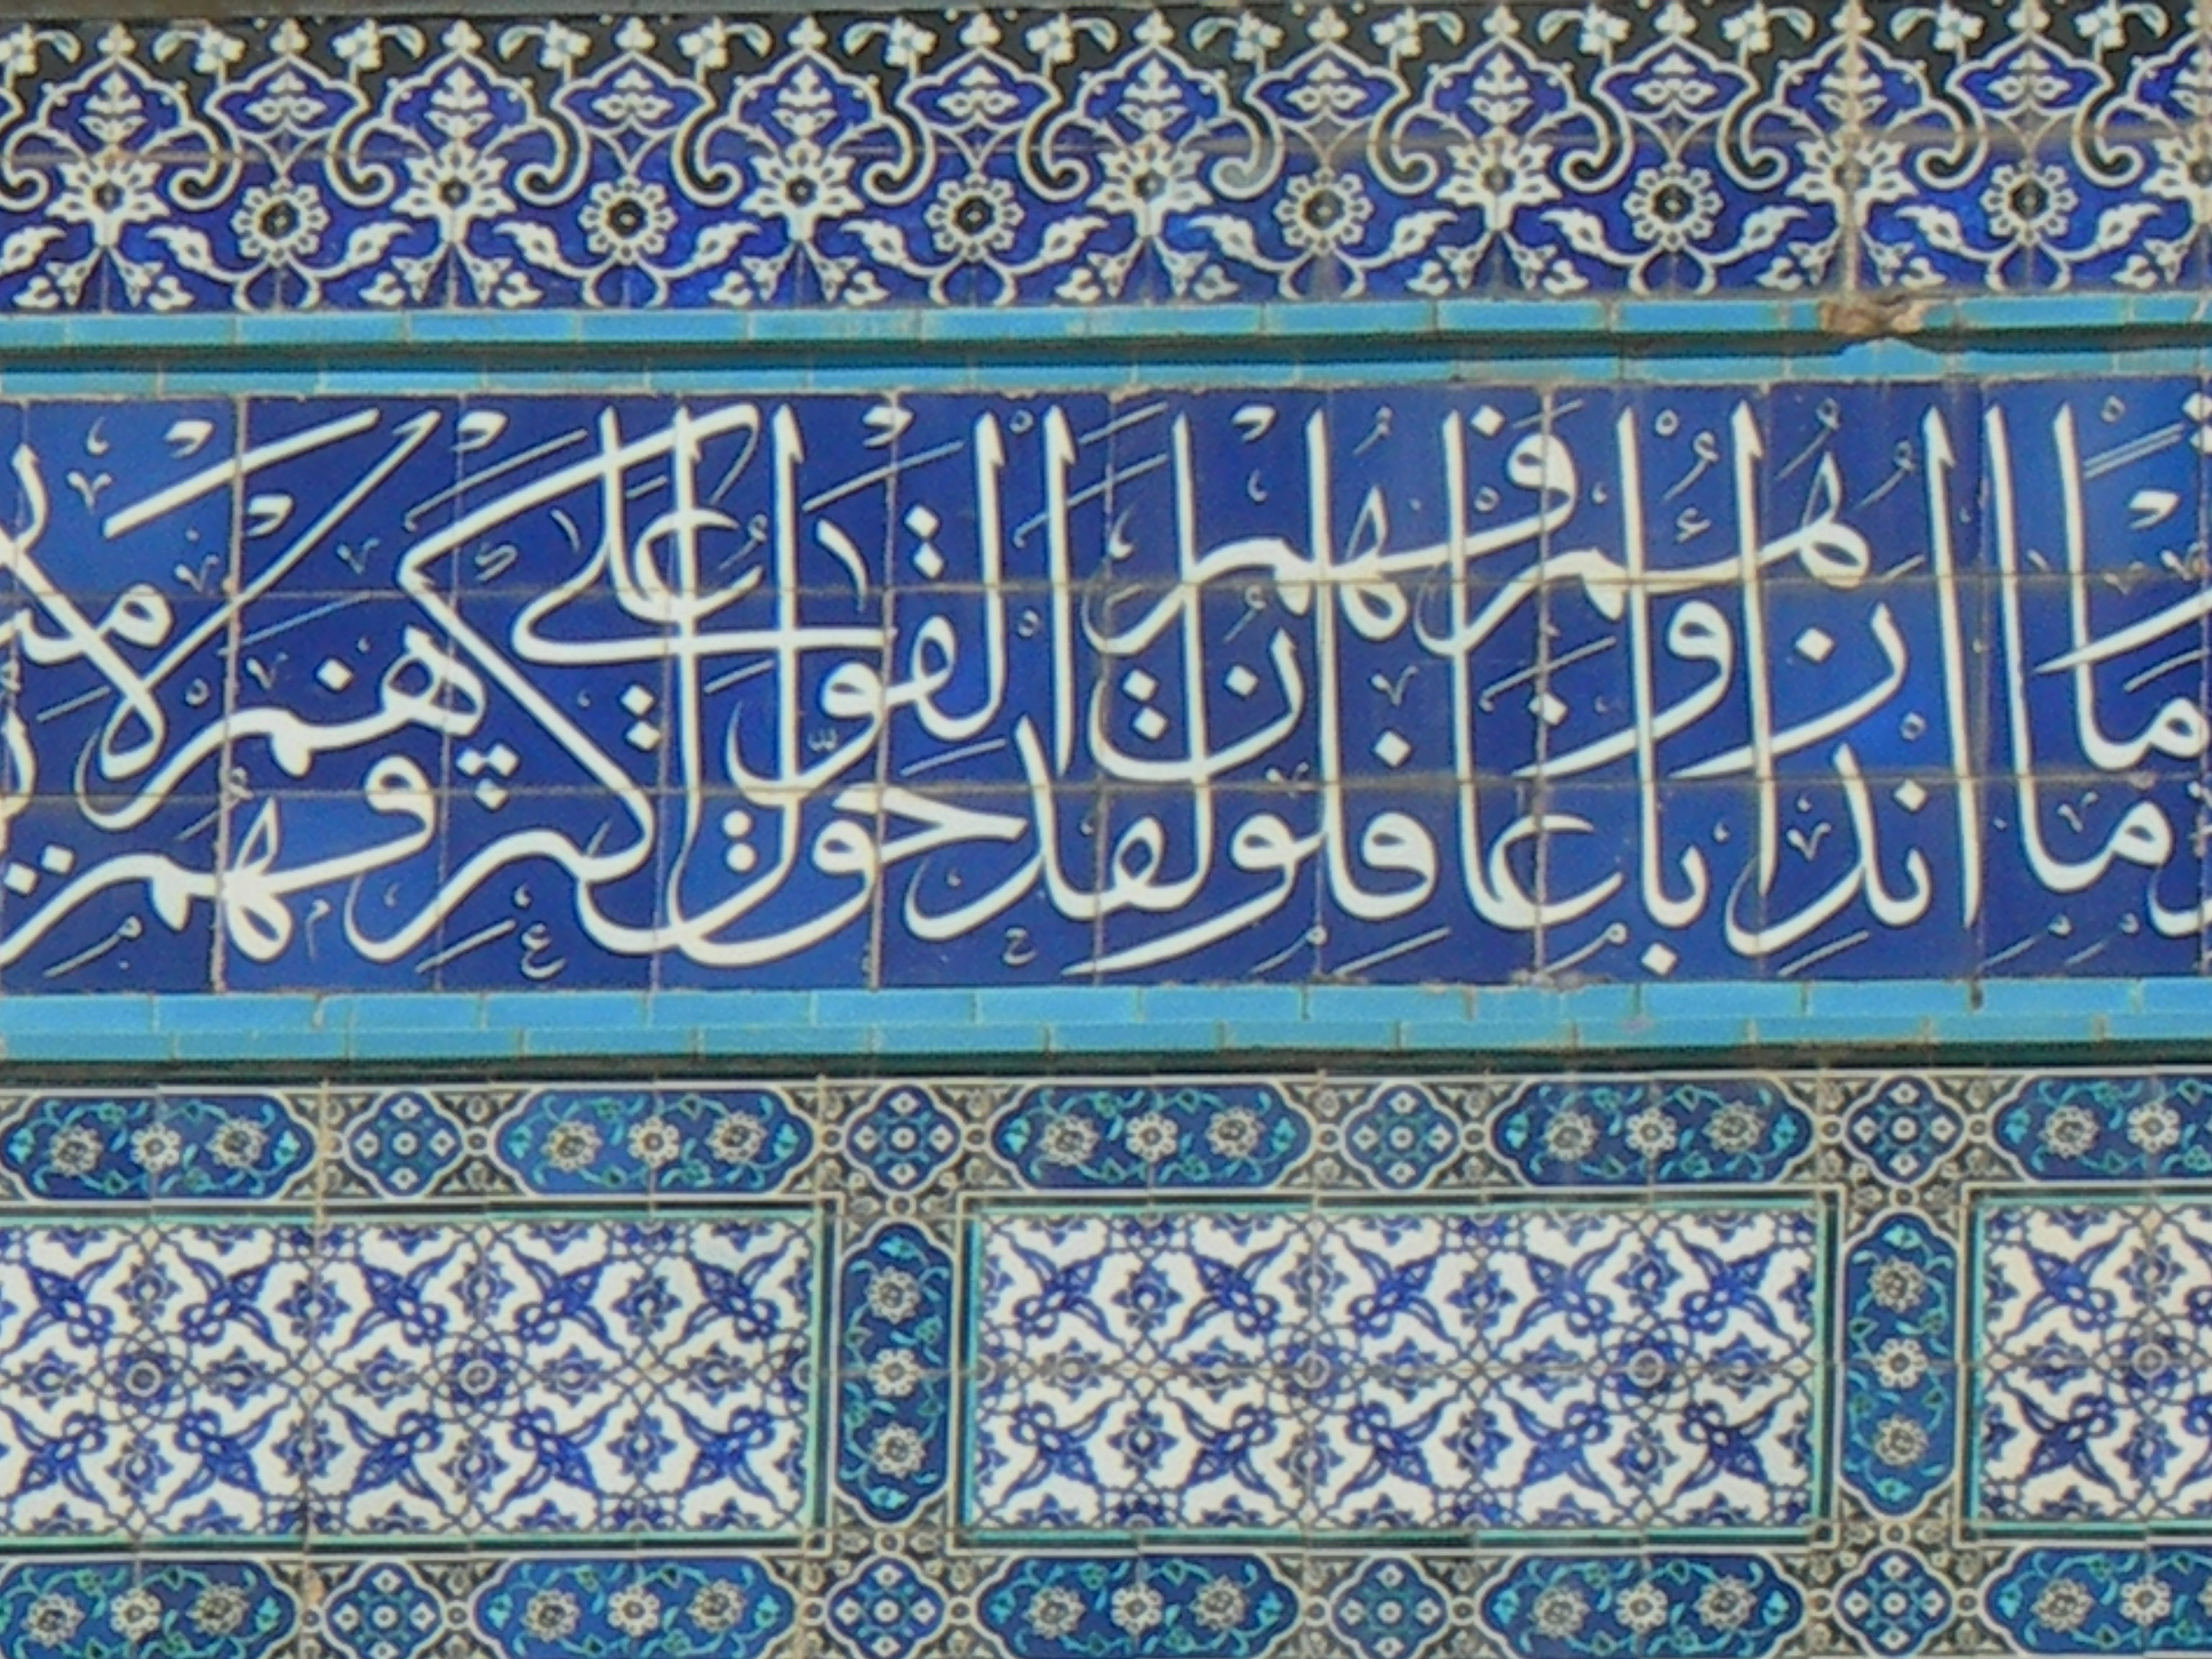 ما انذر اباؤهم فهم غافلون لقد حق القول على اكثرهم فهم لا